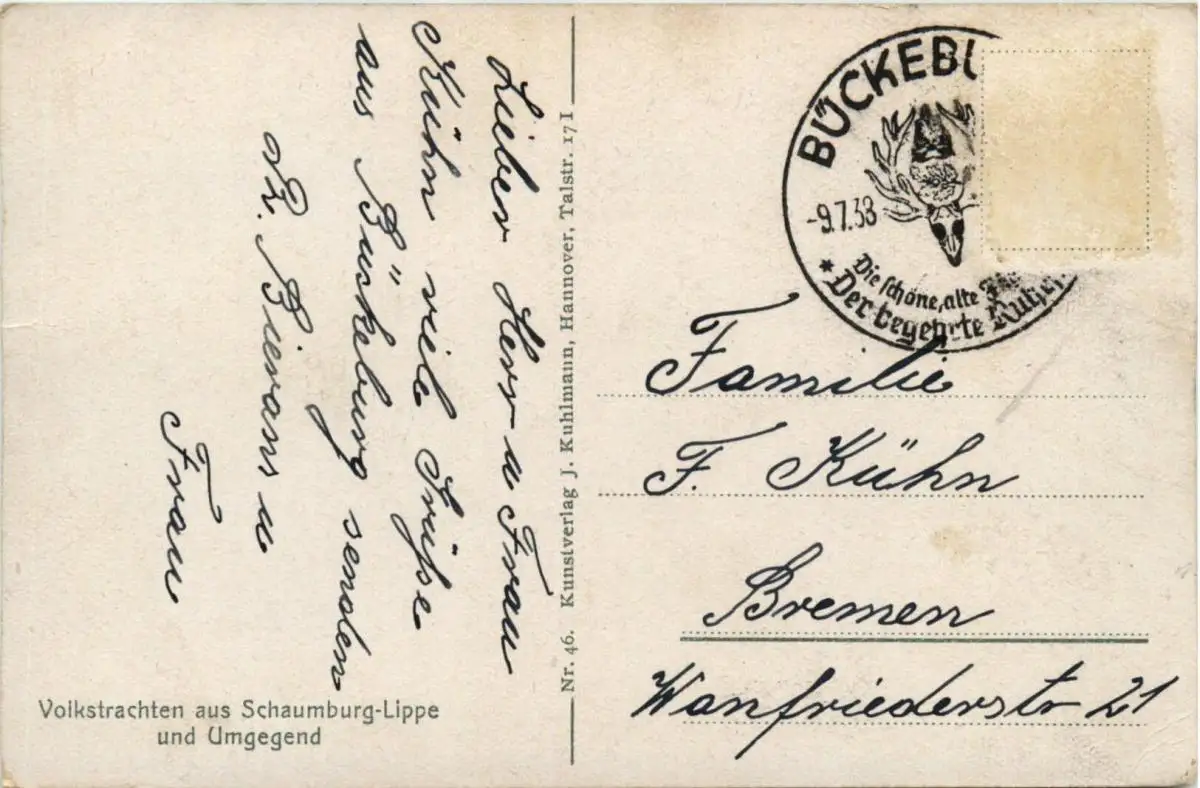 Lieber Herr u Frau
Kühn viele Grüße
aus Bückeburg senden
R. Bierans u
Frau
Volkstrachten aus Schaumburg-Lippe
und Umgegend
Nr. 46. Kunstverlag J. Kuhlmann, Hannover, Talstr. 17 I
BÜCKEBU
-9.7.38
Die schöne, alte
* Der begehrte
Familie
F. Kühn
Bremen
Wanfriederstr 21